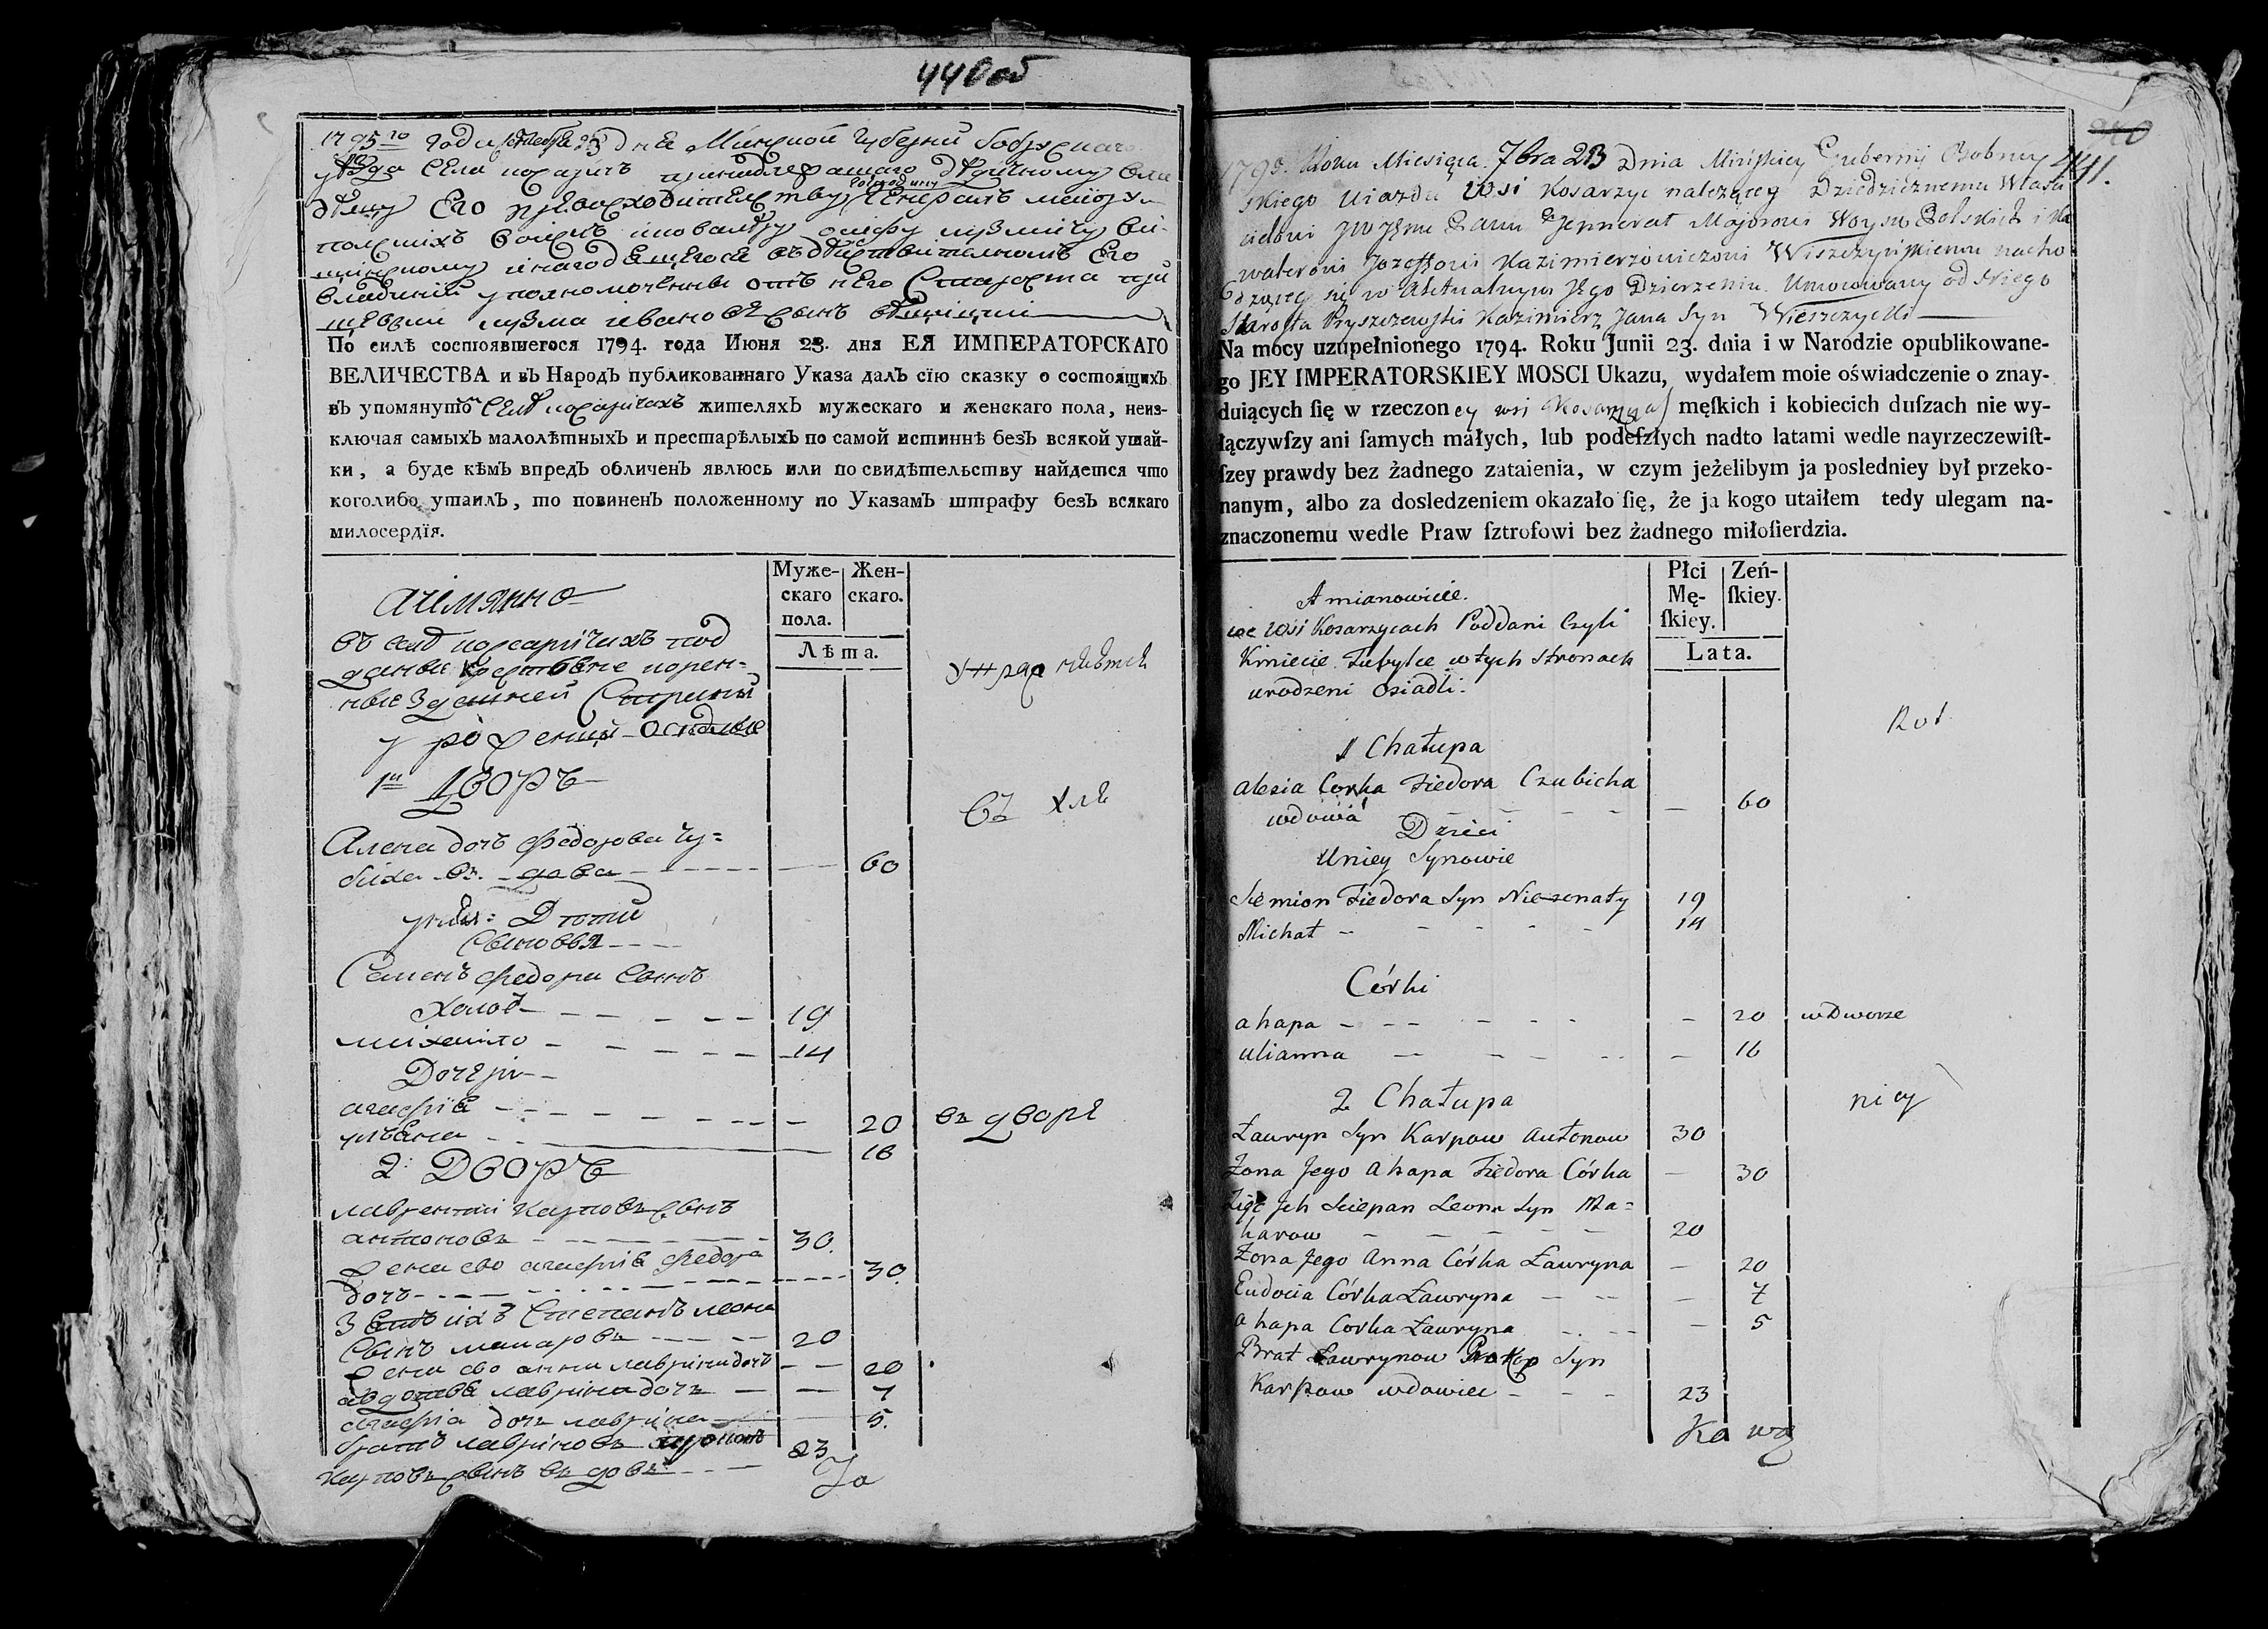 440 об
1795го года сентебря 23 дня Минской губернии бобрускаго
уезда села косаричъ принадлежащого дедичному вла
делцу Его превосходителству господину генералъ маиору
полскихъ воискъ
Его
владении уполномоченны отъ него Староста при
сынъ
По силѣ состоявшегося 1794. года Июня 23. дня ЕЯ ИМПЕРАТОРСКАГО
ВЕЛИЧЕСТВА и въ Народъ публикованнаго Указа далъ сїю сказку о состоящихъ
въ упомянутомъ селе косаричахъ жителяхъ мужескаго и женскаго пола, неиз-
ключая самыхъ малолѣтныхъ и престарѣлыхъ по самой истиннѣ безъ всякой утай-
ки, а буде кѣмъ впредъ обличенъ явлюсь или по свидѣтельству найдется что
коголибо утаилъ, то повиненъ положенному по Указамъ штрафу безъ всякаго
милосердїя.
Муже- Жен-
скаго скаго.
пола.
Лѣта.
а имянно
въ селе косаричахъ под
даные крестьяне корен-
ные здешней стороны
урожении оседлые
1й дворъ
Алена дочъ федорова чу=
биха вдова 60
у неи дети
Сыновья
Семенъ федора сынъ
холост 19
михаило 14
Дочери
агафия 20 въ дворе
ульяна 16
2: Дворъ
лаврентии карповъ сынъ
антоновъ 30.
жена ево агафия федора
дочъ 30.
зять ихъ Степанъ леона
сынъ макаровъ 20
жена ево анна лаврина дочъ 20
авдотья лаврина дочъ 7
агафиа дочъ лаврина 5.
братъ лавриновъ прокопъ
карповъ сынъ вдовъ 23
440
441.
1795. Roku Miesiąca 7bra 23 Dnia Mińskiey Gubernij Bobruy
skiego Uiazdu wsi Kosarzyc należącey Dziedzicznemu Własci
cielowi JW Jmu Panu Jenneral Majorowi Woysk Polskich i Ka
walerowi Jozeffowi Kazimierzowiczowi Wiszczyńskiemu nacho
dzącey się w Aktualnym Jego Dzierzeniu. Umocowany od Niego
Starosta Pryszczewski Kazimierz Jana Syn Wierzczycki
Na mocy uzupełnionego 1794. Roku Junii 23. dnia i w Narodzie opublikowane-
go JEY IMPERATORSKIEY MOSCI Ukazu, wydałem moie oświadczenie o znay-
duiących ſię w rzeczoney wsi Kosarzycach męſkich i kobiecich duſzach nie wy-
łączywſzy ani ſamych małych, lub podeſzłych nadto latami wedle nayrzeczewiſt-
ſzey prawdy bez żadnego zataienia, w czym jeżelibym ja posledniey był przeko-
nanym, albo za dosledzeniem okazało ſię, że ja kogo utaiłem tedy ulegam na-
znaczonemu wedle Praw ſztrofowi bez żadnego miłoſierdzia.
Płci Zeń-
Mę- ſkiey.
ſkiey.
Lata.
A mianowicie.
we wsi Kosarzycach Poddani Czyli
Kmiecie Tubylce w tych stronach
urodzeni osiadli.
1 Chałupa
Alesia Corka Fiedora Czubicha
wdowa 60
Dzieci
U niey Synowie
Siemion Fiedora Syn Nieżonaty 19
Michał 14
Córki
Ahapa 20 w Dworze
Ulianna 16
2 Chałupa
Ławryn Syn Karpow Antonow 30
Żona Jego Ahapa Fiedora Córka 30
Zięć Jch Sciepan Leona Syn Ma=
karow 20
Żona Jego Anna Córka Ławryna 20
Eudocia Córka Ławryna 7
Ahapa Corka Ławryna 5
Brat Ławrynow Prokop Syn
Karpow wdowiec 23